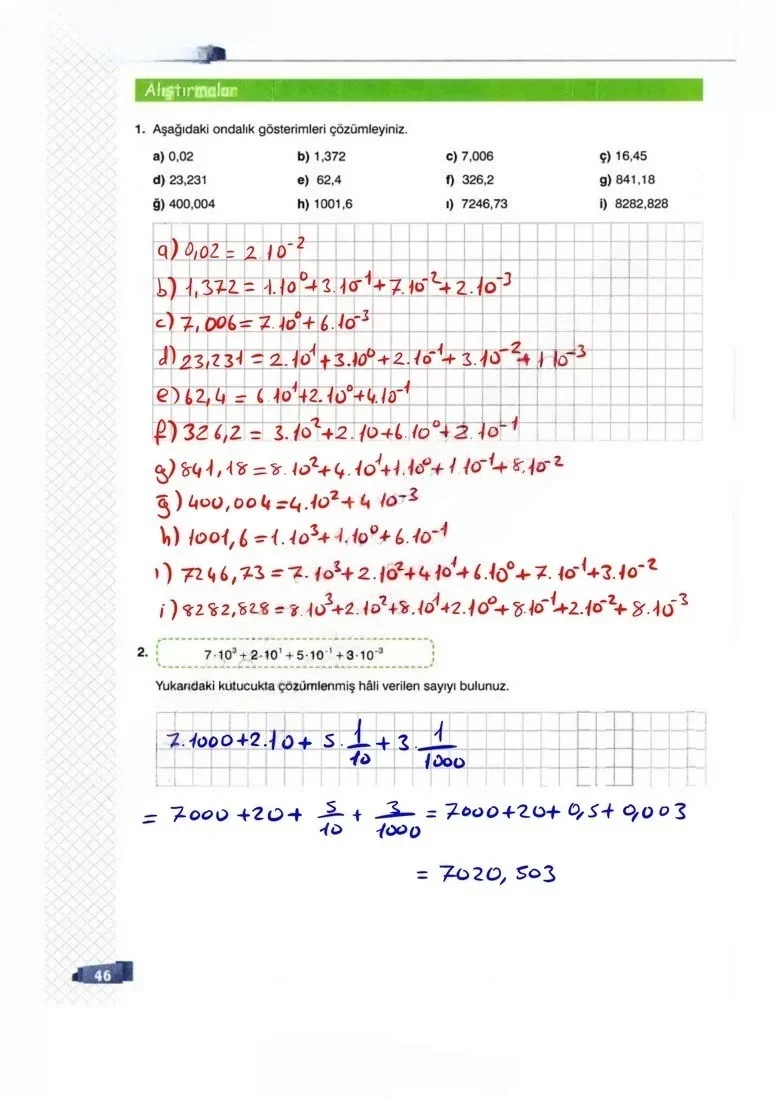 Alıştırmalar
1. Aşağıdaki ondalık gösterimleri çözümleyiniz.
a) 0,02 b) 1,372 c) 7,006 ç) 16,45
d) 23,231 e) 62,4 f) 326,2 g) 841,18
ğ) 400,004 h) 1001,6 ı) 7246,73 i) 8282,828
a) 0,02 = 2.10⁻²
b) 1,372 = 1.10⁰+3.10⁻¹+7.10⁻²+2.10⁻³
c) 7,006 = 7.10⁰+6.10⁻³
d) 23,231 = 2.10¹+3.10⁰+2.10⁻¹+3.10⁻²+1 10⁻³
e) 62,4 = 6.10¹+2.10⁰+4.10⁻¹
f) 326,2 = 3.10²+2.10+6.10⁰+2.10⁻¹
g) 841,18 = 8.10²+4.10¹+1.10⁰+1.10⁻¹+8.10⁻²
ğ) 400,004 = 4.10²+4 10⁻³
h) 1001,6 = 1.10³+1.10⁰+6.10⁻¹
ı) 7246,73 = 7.10³+2.10²+4 10¹+6.10⁰+7.10⁻¹+3.10⁻²
i) 8282,828 = 8.10³+2.10²+8.10¹+2.10⁰+8.10⁻¹+2.10⁻²+8.10⁻³
2. 7·10³ + 2·10¹ + 5·10⁻¹ + 3·10⁻³
Yukarıdaki kutucukta çözümlenmiş hâli verilen sayıyı bulunuz.
7.1000+2.10+ 5.1/10 + 3.1/1000
= 7000+20+ 5/10 + 3/1000 = 7000+20+0,5+0,003
= 7020,503
46